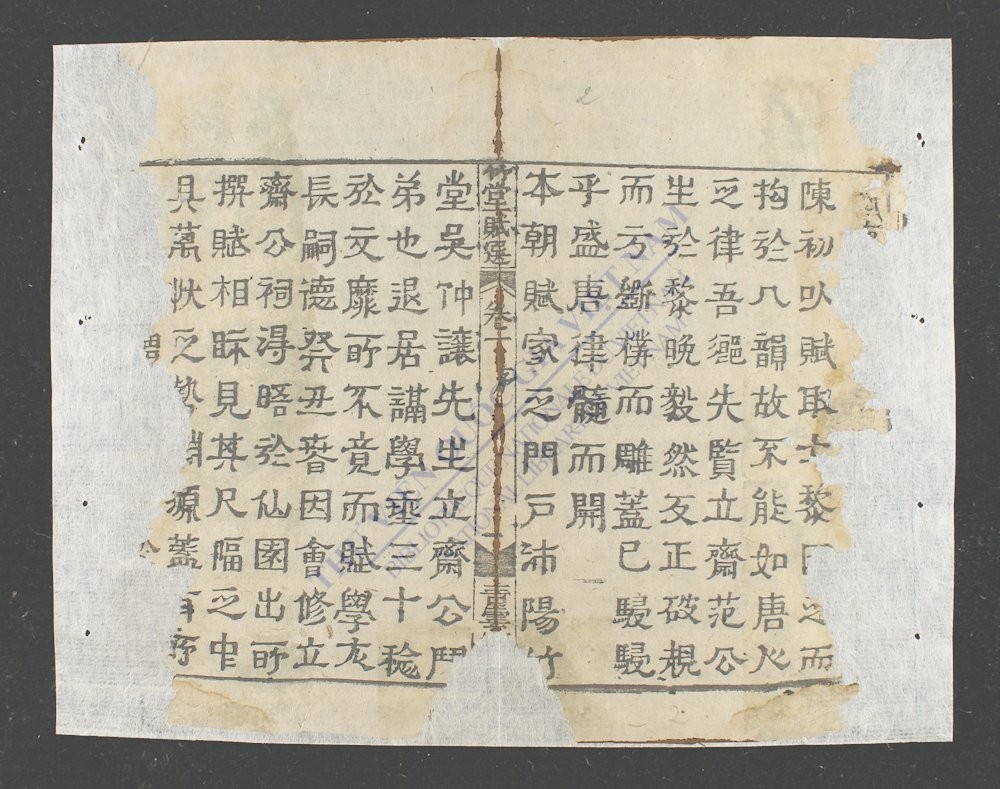 陳初以賦取士黎因之而
拘於八韻故不能如唐人
之律吾邇先覽立齋范公
生於黎晚毅然反正破規
而方斲樸而雕蓋已駸駸
乎盛唐律髓而開
本朝賦家之門戶沛陽竹
竹堂賦選 卷一 一 青雲
堂吳仲讓先生立齋公門
弟也退居講學垂三十稔
於文靡所不竟而賦學尤
長嗣德癸丑春因會修立
齋公祠得晤於仙園出所
撰賦相眎見其尺幅之中
具萬狀之勢 源蓋有
2
THƯ VIỆN QUỐC GIA VIỆT NAM
BIBLIOTHÈQUE NATIONALE DU VIETNAM
NATIONAL LIBRARY OF VIETNAM